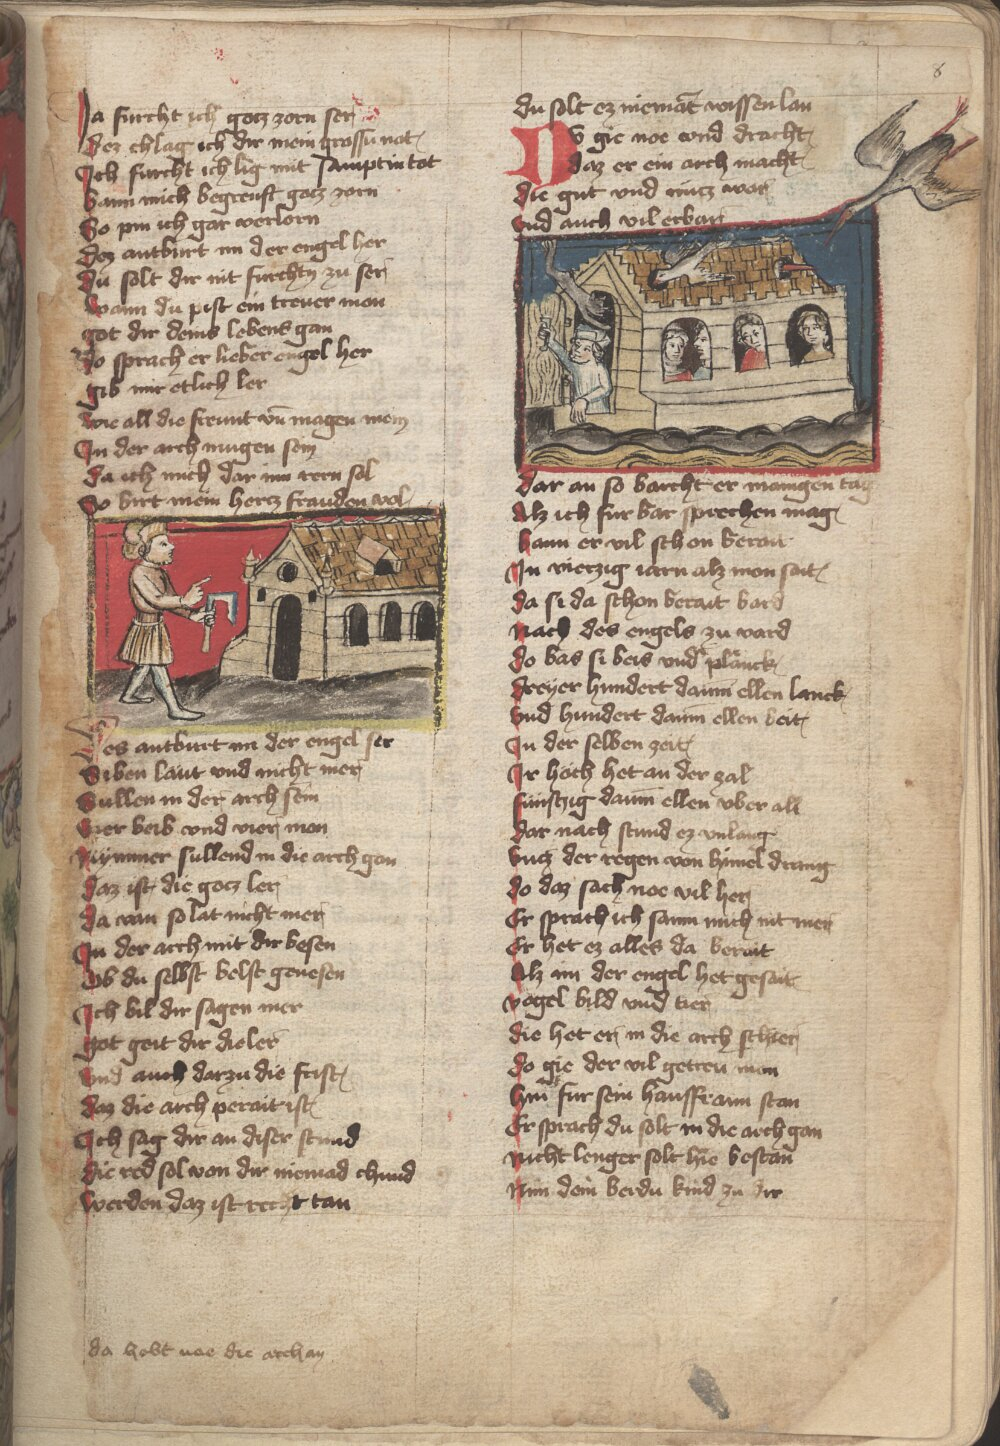 8
Ja furcht ich gocz zorn ser
Dez chlag ich dir mein grossu not
Ich furcht ich lig mit sampt in tot
Wann mich begreuft gocz zorn
So pin ich gar verlorn
Dez antburt im der engel her
du solt dir nit furchtn zu ser
wann du pist ein treuer mon
got dir deins lebens gan
Do sprach er lieber engel her
gib mir etlich ler
wie all die freunt vn magen mein
In der arch mugen sein
da ich mich dar inn nern sol
So birt mein hercz frauden vol
Des antburt im der engel ser
Siben laut vnd nicht mer
Sullen in der arch sein
vier beib vnd vier mon
Nymmer sullend in die arch gan
daz ist die gocz ler
da von so lat nicht mer
In der arch mit dir besen
Ob du selbst belst genesen
Ich bil dir sagen mer
got geit dir die ler
vnd auch darzu die frist
daz die arch perait ist
Ich sag dir an diser stund
die red sol von dir niemad chund
werden daz ist recht tan
da hebt noe die arch an
du solt ez niemat wissen lan
Do gie noe vnd dracht
daz er ein arch macht
die gut vnd nucz was
vnd auch vil erbar
dar an so borcht er manigen tag
Alz ich fur bar sprechen mag
bann er vil schon berait
In vierzig iarn alz mon sait
da si da schon berait bard
nach des engels zu vard
do bas si beis vnd planck
dreyer hundert daum ellen lanck
vnd hundert daum ellen beit
In der selben zeit
Ir hoch het an der zal
funfzig daum ellen vber all
dar nach stund ez vnlang
bucz der regen von himel drang
do daz sach noe vil her
Er sprach ich saum mich nit mer
Er het ez alles da berait
Alz im der engel het gesait
vogel bild vnd tier
die het er in die arch schier
do gie der vil getreu mon
hin fur sein hausfraun stan
Er sprach du solt in die arch gan
nicht lenger solt hie bestan
Nim dein berdu kind zu dir